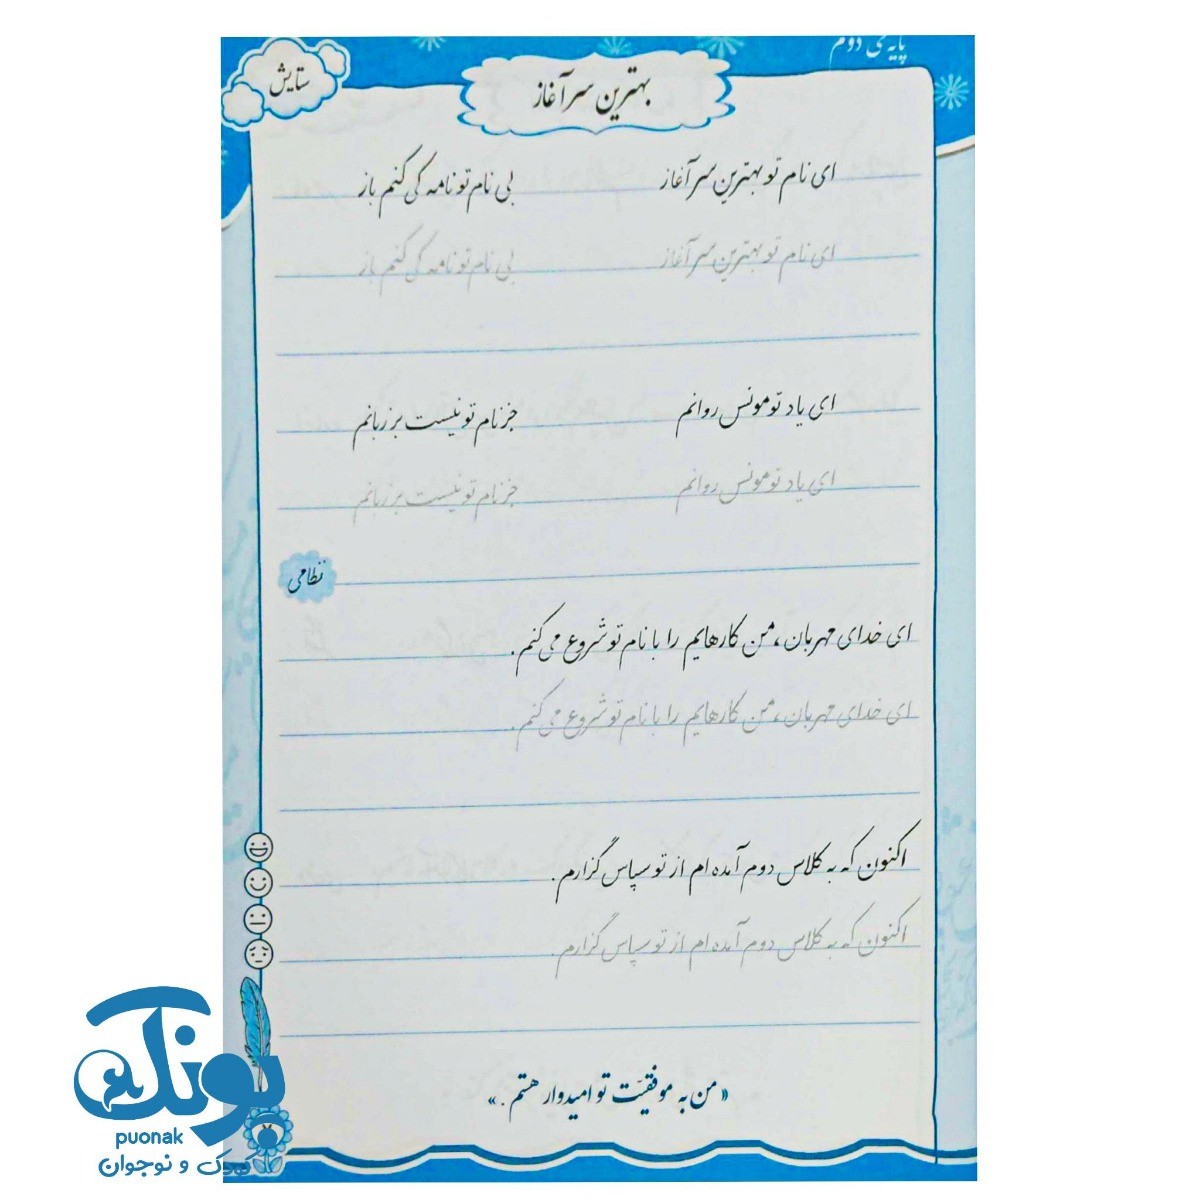 پایه‌ی دوم
ستایش
بهترین سرآغاز
ای نام تو بهترین سرآغاز بی نام تو نامه کی کنم باز
ای نام تو بهترین سرآغاز بی نام تو نامه کی کنم باز
ای یاد تو مونس روانم جز نام تو نیست بر زبانم
ای یاد تو مونس روانم جز نام تو نیست بر زبانم
نظامی
ای خدای مهربان ، من کارهایم را با نام تو شروع می کنم .
ای خدای مهربان ، من کارهایم را با نام تو شروع می کنم .
اکنون که به کلاس دوم آمده ام از تو سپاس گزارم .
اکنون که به کلاس دوم آمده ام از تو سپاس گزارم .
« من به موفقیّت تو امیدوار هستم . »
پونک
puonak
کودک و نوجوان